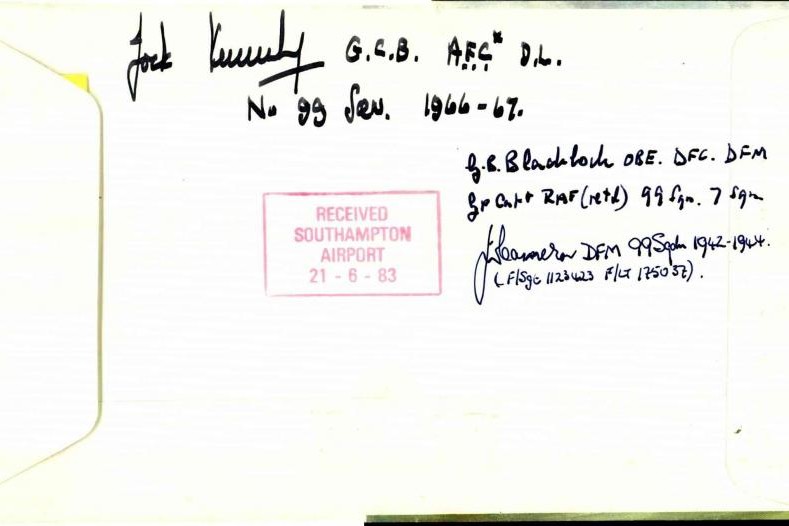 Jock Kennedy G.C.B. A.F.C* D.L.
No 99 Sqn. 1966-67.
G.B. Blacklock OBE. DFC. DFM
Gp Capt RAF (retd) 99 Sqn. 7 Sqn
RECEIVED
SOUTHAMPTON
AIRPORT
21 - 6 - 83
Cameron DFM 99 Sqdn 1942-1944.
(F/Sgt 1123423 F/LT 175037).